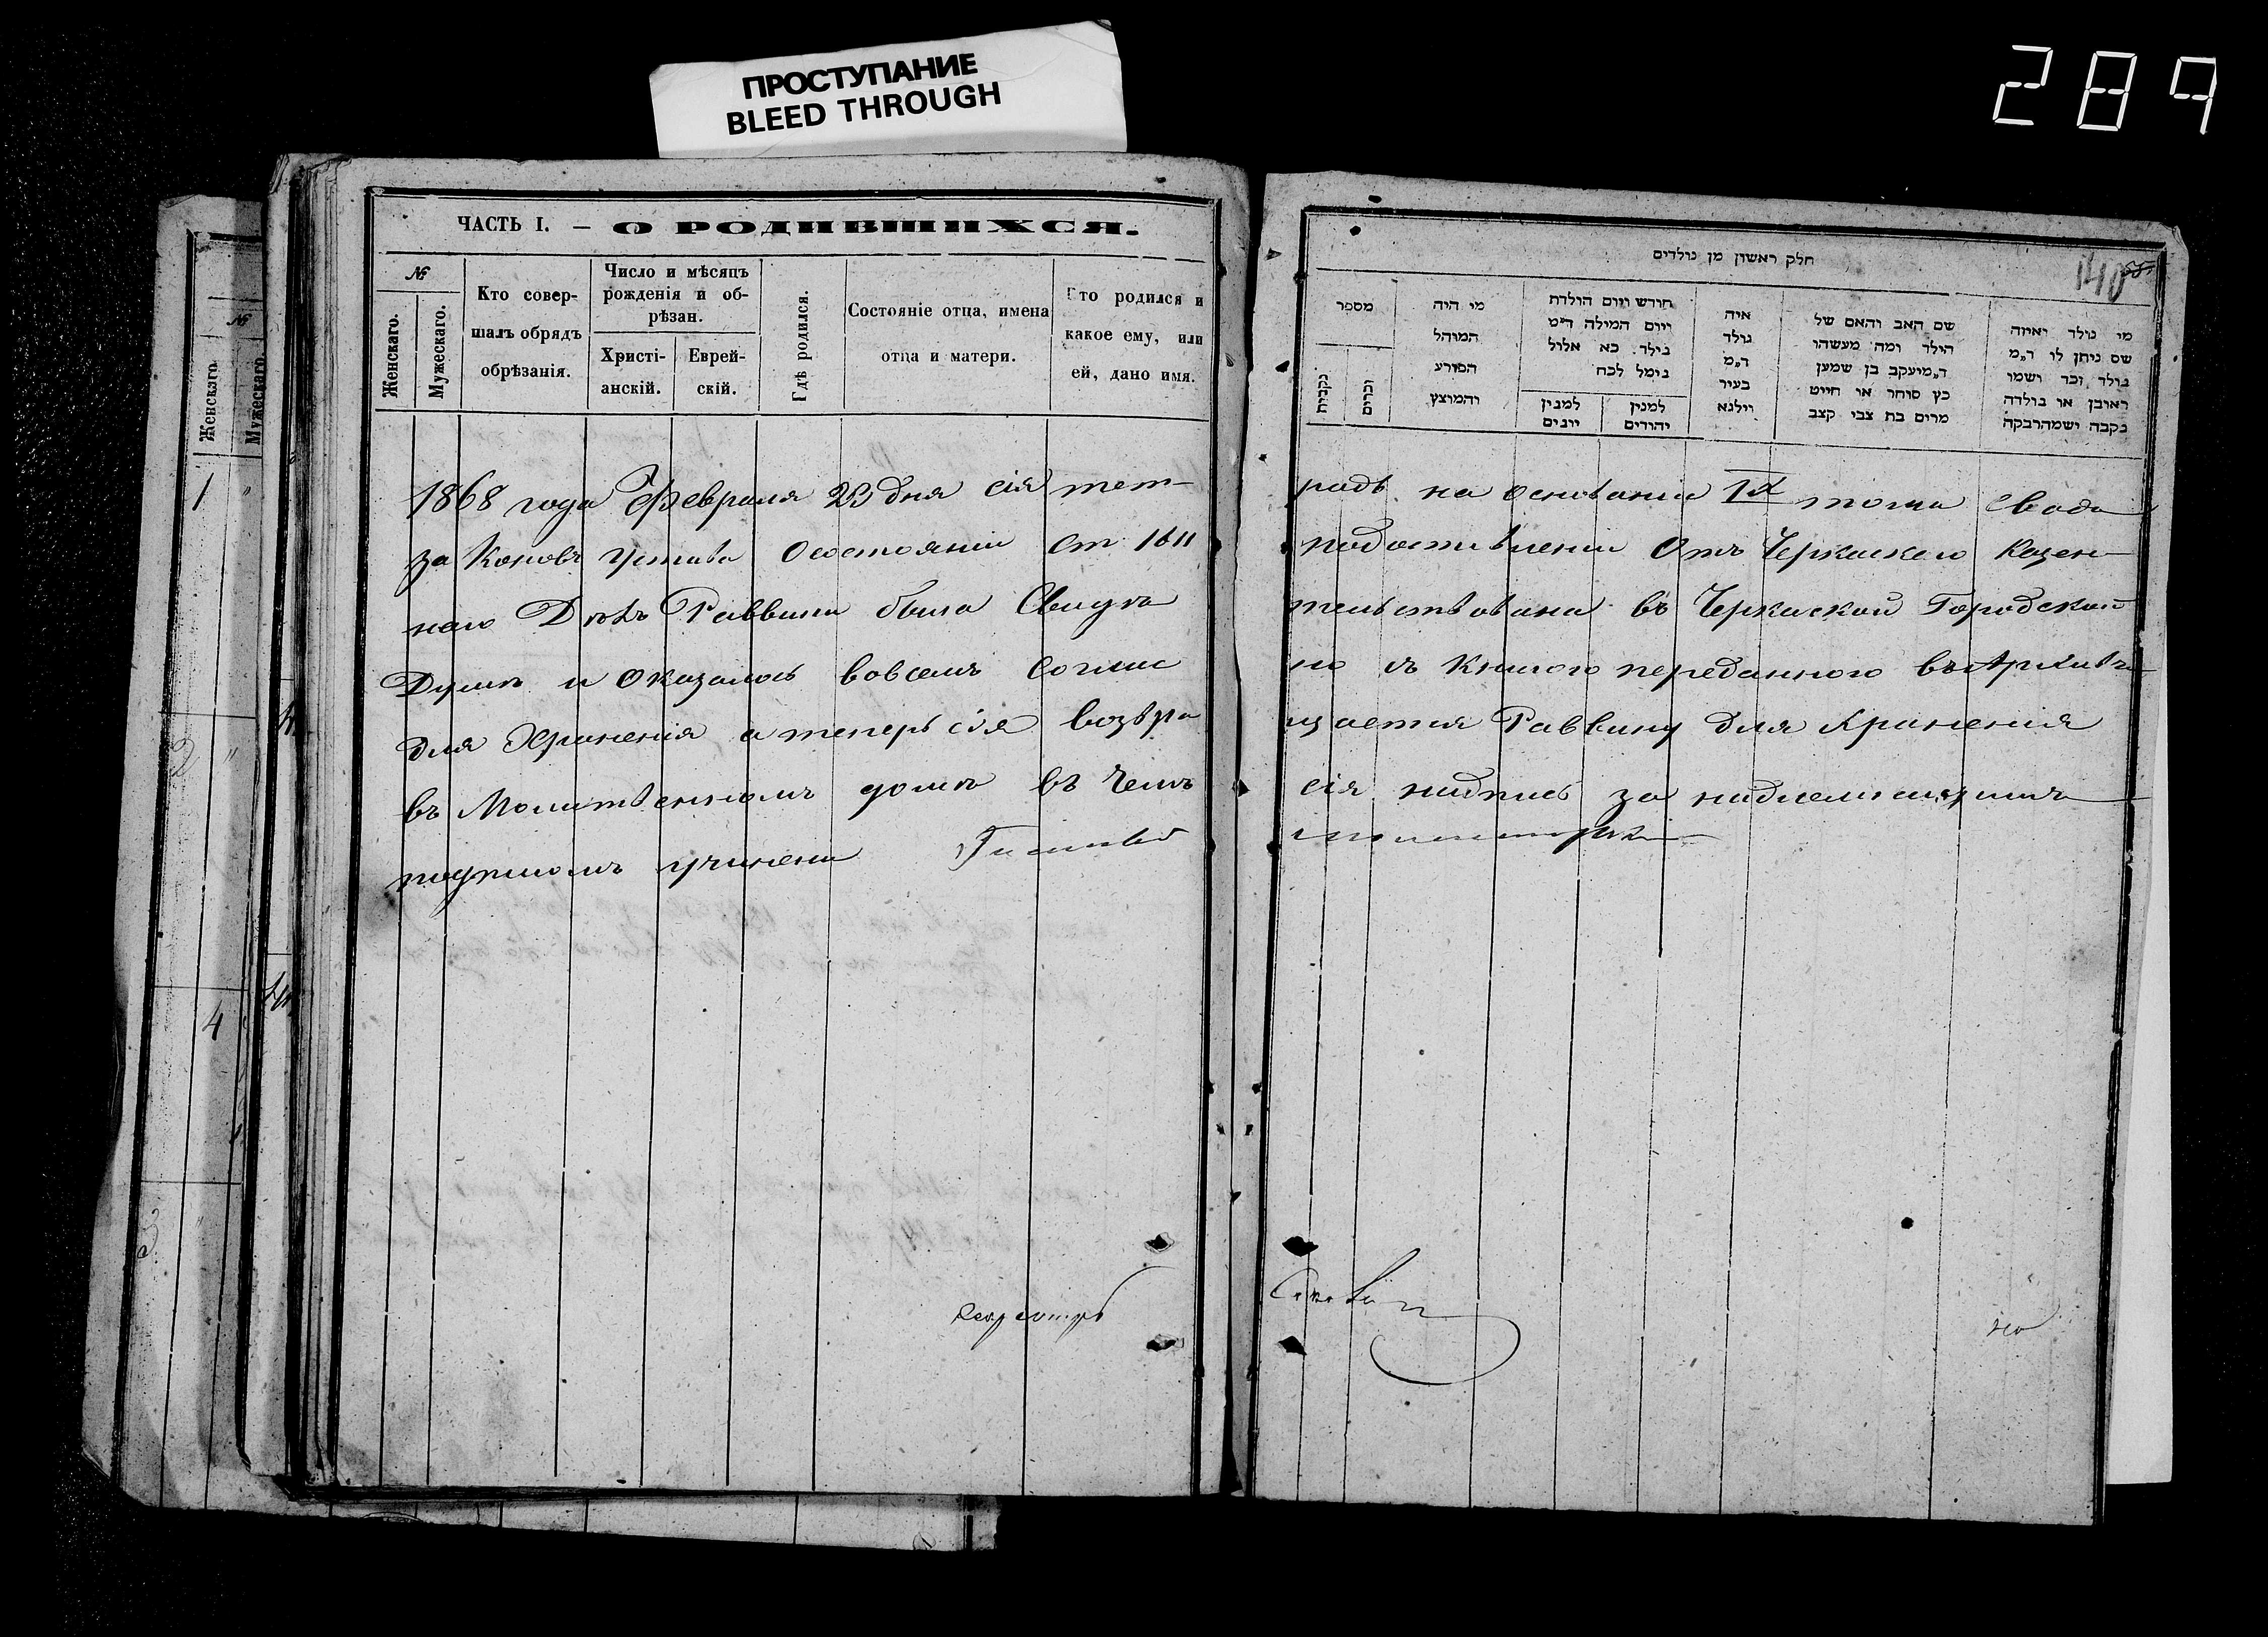 ПРОСТУПАНИЕ
BLEED THROUGH
289
ЧАСТЬ I. — О РОДИВШИХСЯ.
№
Женскаго.
Мужескаго.
Кто совер-
шалъ обрядъ
обрѣзанія.
Число и мѣсяцъ
рожденія и об-
рѣзан.
Христі-
анскій.
Еврей-
скій.
Гдѣ родился.
Состояніе отца, имена
отца и матери.
Кто родился и
какое ему, или
ей, дано имя.
1868 года Февраля 23 дня сія тет-
за Коновъ Устава О состоянии ст 1611
наго Раввина была Свидѣ
Думѣ и Оказалось вовсемъ Соглас
для Хранения а теперь сія возвра
въ Молитвенномъ домѣ въ чемъ
подписомъ учинена
Секретарь
חלק ראשון מן נולדים
140
מספר
נקבות
זכרים
מי היה
המוהל
הפורע
והמוצץ
חודש ויום הולדת
ויום המילה ד״מ
נילד כא אלול
נימל לכח
למנין
יונים
למנין
יהודים
איה
נולד
ד״מ
בעיר
וילנא
שם האב והאם של
הילד ומה מעשהו
ד״מ יעקב בן שמען
כץ סוחר או חייט
מרים בת צבי קצב
מי נולד ואיזה
שם ניתן לו ד״מ
נולד זכר ושמו
ראובן או נולדה
נקבה ושמה רבקה
радь на основании IX тома свода
Отъ Черкаскаго Казен-
тельствована въ Черкаской Городской
но съ Книгою переданною въ Архивъ
щается Раввину для хранения
сія надпись за надлежащимъ
Женскаго
Мужескаго
№
1
2
4
3